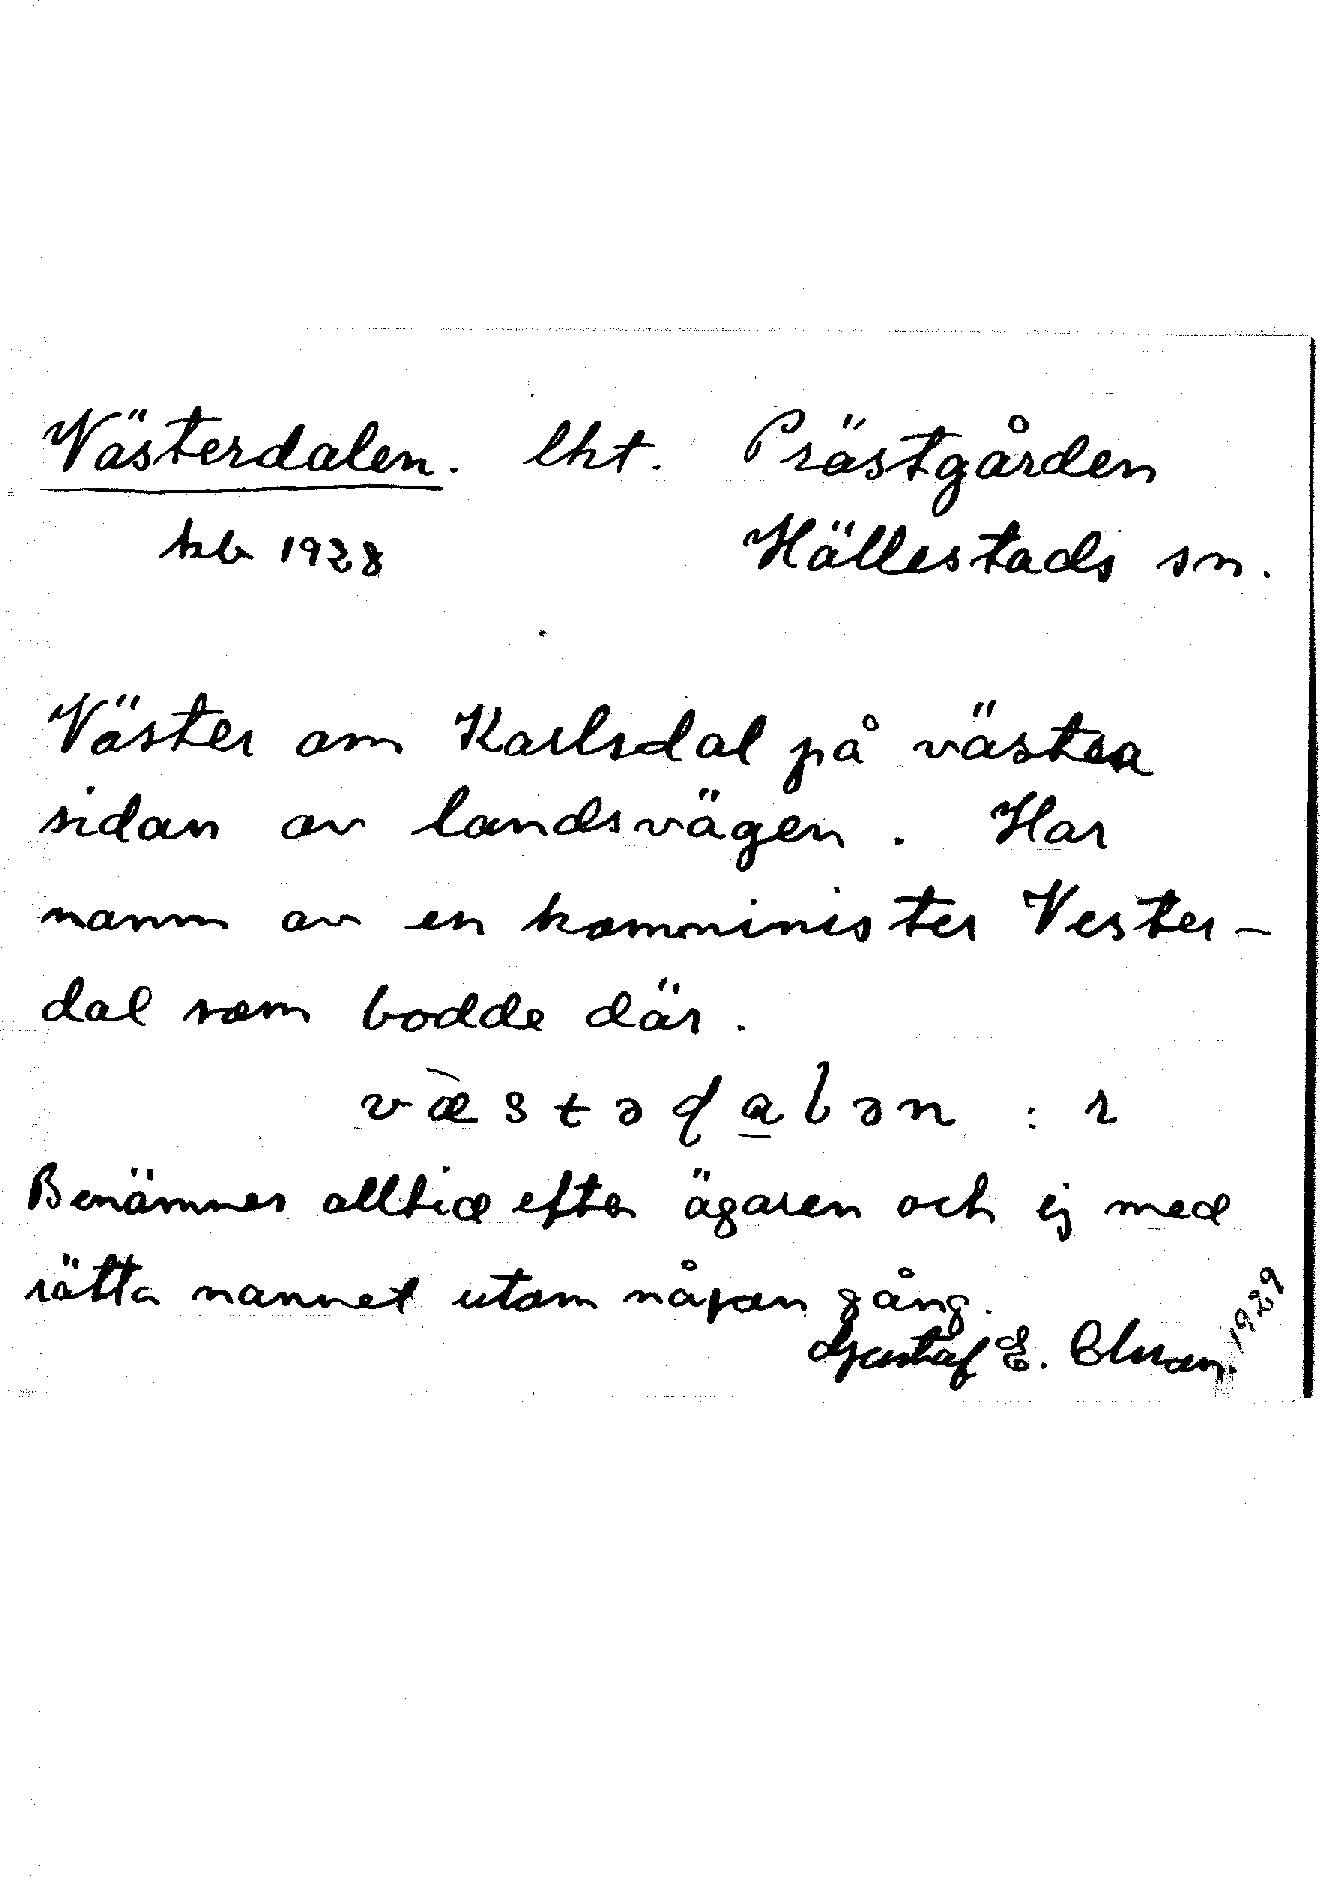 Västerdalen. lht. Prästgården
kb 1928 Hällestads sn.
Väster om Karlsdal på västra
sidan av landsvägen. Har
namn av en komminister Vester-
dal som bodde där.
væ̀stəɖalən : r
Benämnes alltid efter ägaren och ej med
rätta namnet utom någon gång.
Gustaf E. 1929